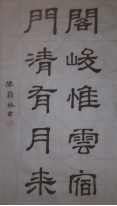 閣峻惟雲宿
門清有月来
陳蔚林書